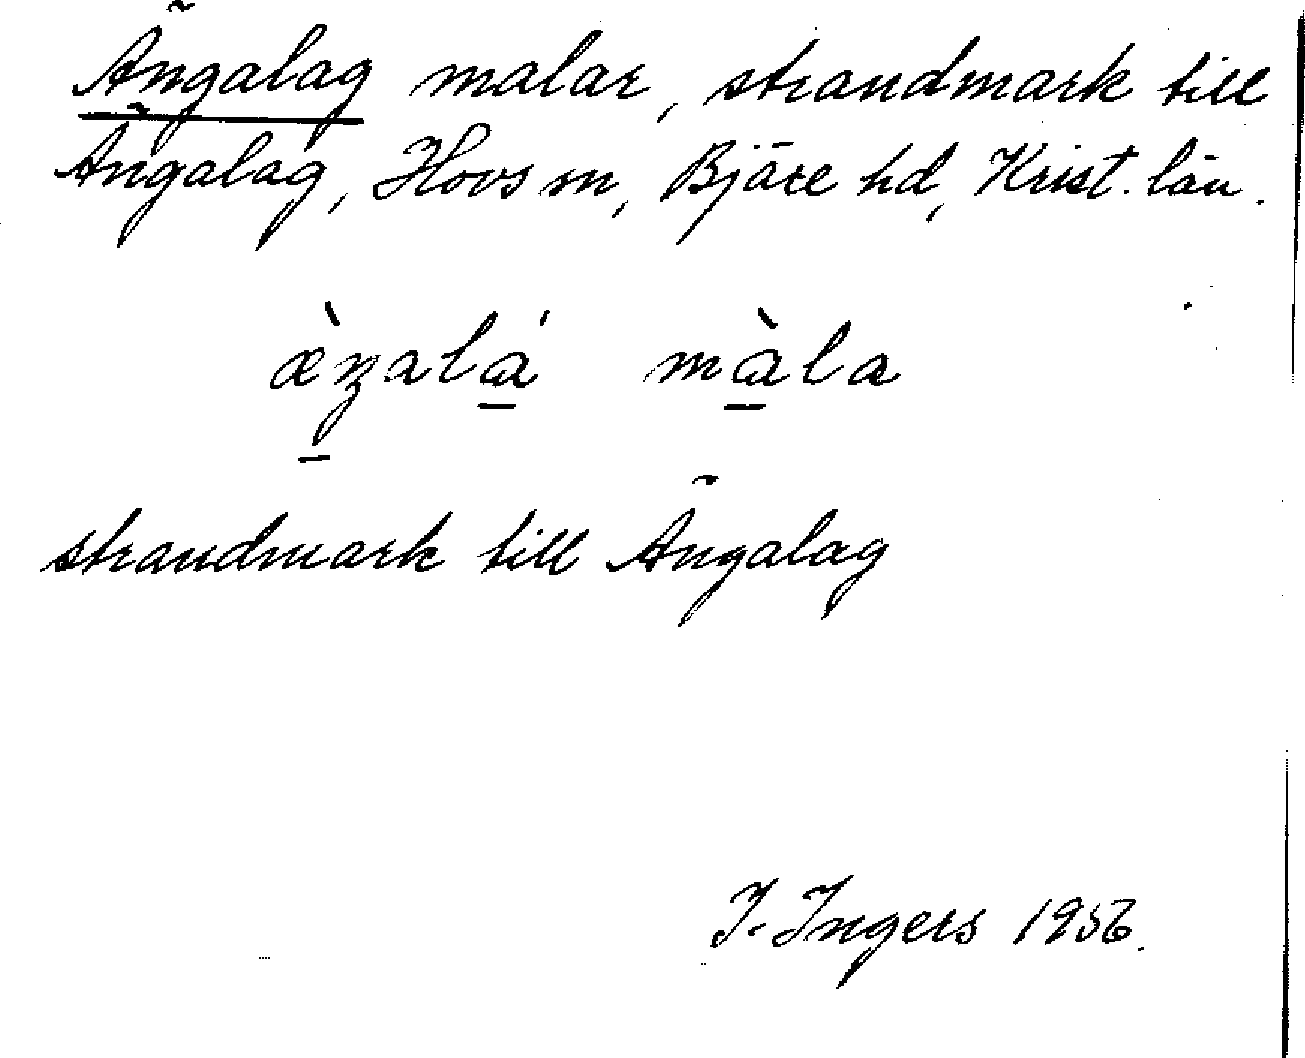 Ängalag malar, strandmark till
Ängalag, Hovs sn, Bjäre hd, Krist. län.
æ̀ŋalá màla
strandmark till Ängalag
I. Ingers 1956.